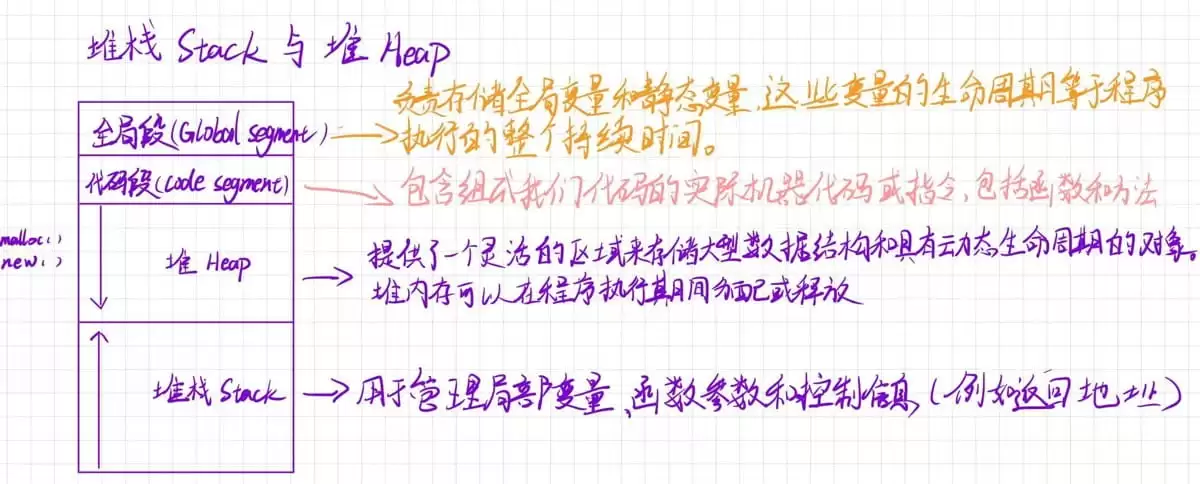 堆栈 Stack 与 堆 Heap
负责存储全局变量和静态变量,这些变量的生命周期等于程序
全局段(Global segment)
执行的整个持续时间。
代码段(code segment)
包含组成我们代码的实际机器代码或指令,包括函数和方法
malloc()
new()
堆 Heap
提供了一个灵活的区域来存储大型数据结构和具有动态生命周期的对象。
堆内存可以在程序执行期间分配或释放
堆栈 Stack
用于管理局部变量、函数参数和控制信息(例如返回地址)